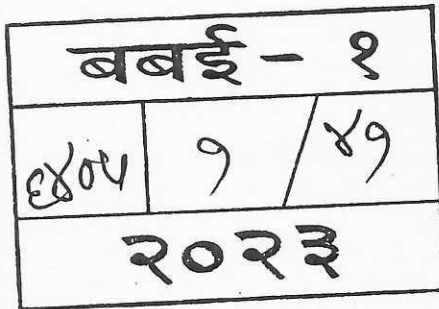 बबई - १
६४०५ १ / ४१
२०२३